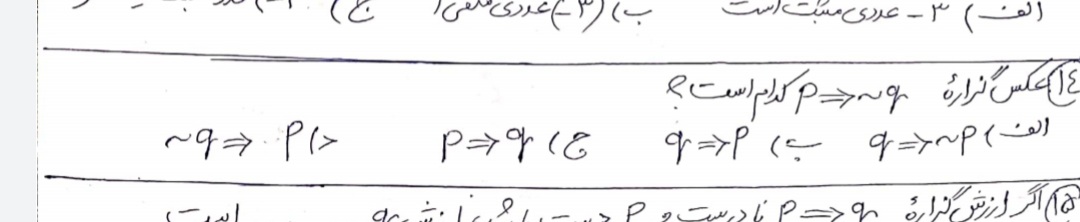 الف) ۳- عددی مثبت است ب) (۳-) عددی ج)
۱۴) عکس گزارهٔ p ⇒ ~q کدام است؟
الف) q ⇒ ~p ب) q ⇒ p ج) p ⇒ q د) ~q ⇒ p
۱۵) اگر ارزش گزارهٔ p ⇒ q نادرست و p درست باشد ارزش q است